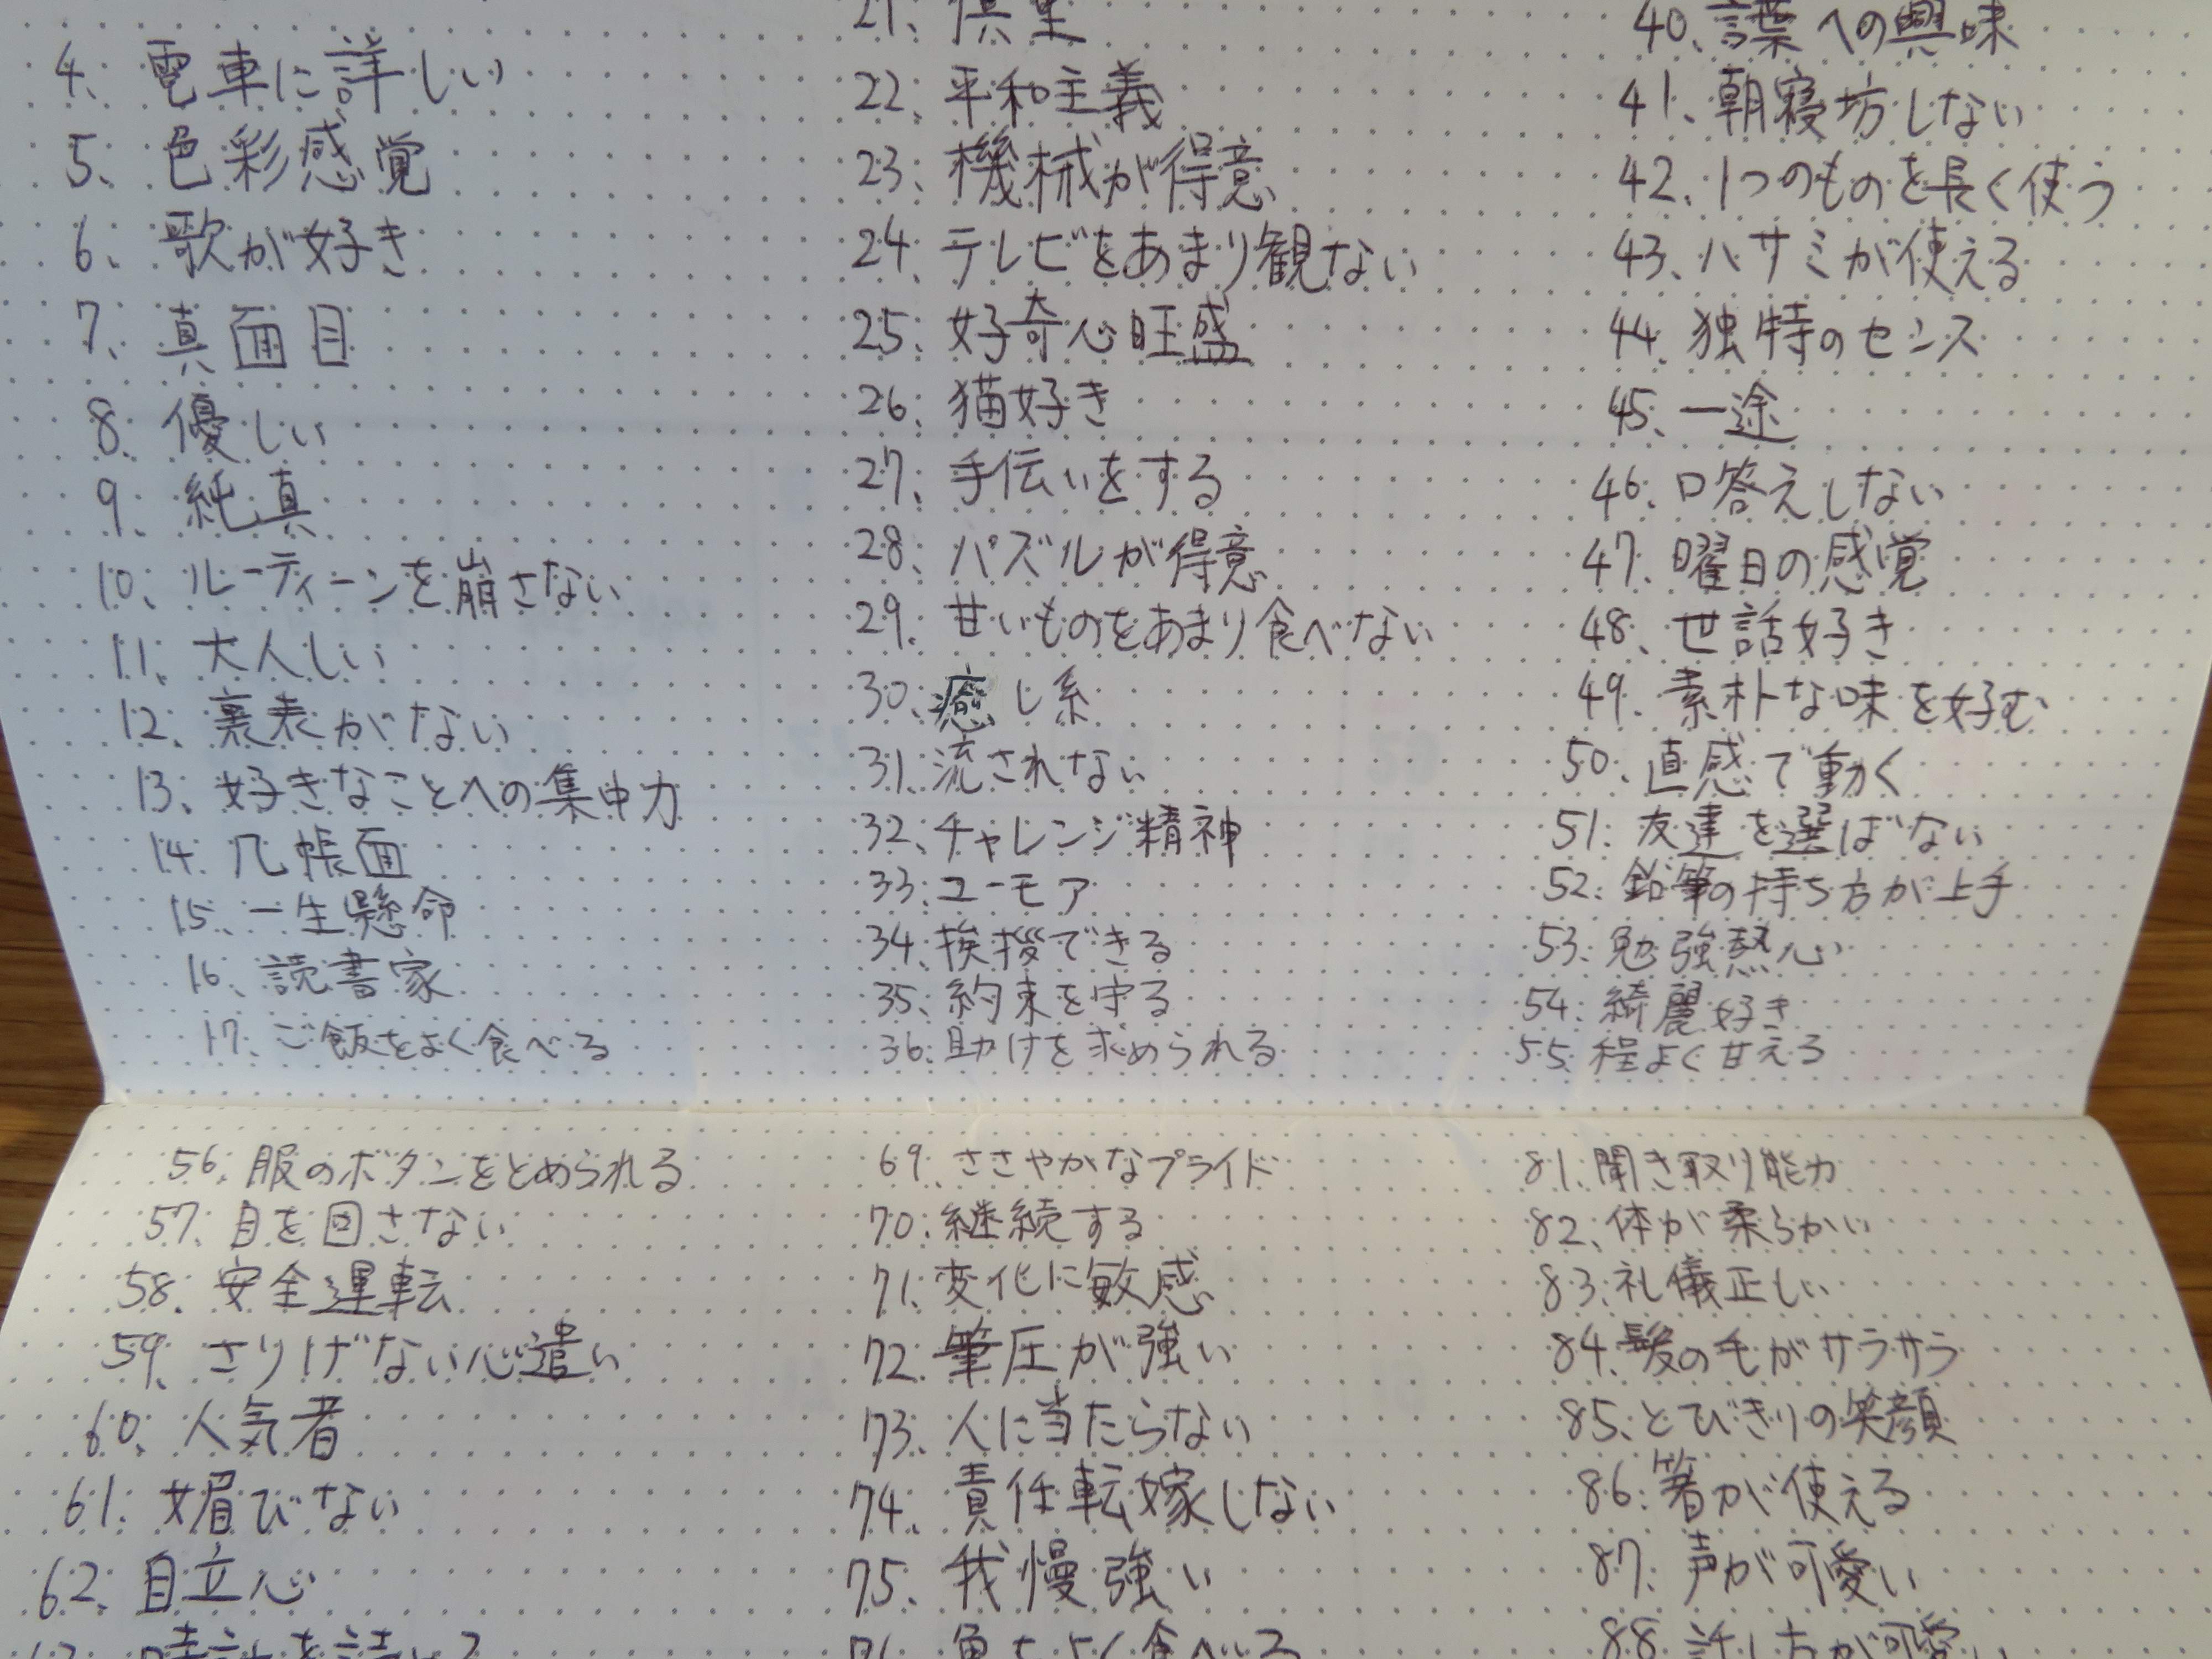 4. 電車に詳しい
5. 色彩感覚
6. 歌が好き
7. 真面目
8. 優しい
9. 純真
10. ルーティーンを崩さない
11. 大人しい
12. 裏表がない
13. 好きなことへの集中力
14. 几帳面
15. 一生懸命
16. 読書家
17. ご飯をよく食べる
21. 慎重
22. 平和主義
23. 機械が得意
24. テレビをあまり観ない
25. 好奇心旺盛
26. 猫好き
27. 手伝いをする
28. パズルが得意
29. 甘いものをあまり食べない
30. 癒し系
31. 流されない
32. チャレンジ精神
33. ユーモア
34. 挨拶できる
35. 約束を守る
36. 助けを求められる
40. 言葉への興味
41. 朝寝坊しない
42. 1つのものを長く使う
43. ハサミが使える
44. 独特のセンス
45. 一途
46. 口答えしない
47. 曜日の感覚
48. 世話好き
49. 素朴な味を好む
50. 直感で動く
51. 友達を選ばない
52. 鉛筆の持ち方が上手
53. 勉強熱心
54. 綺麗好き
55. 程よく甘える
56. 服のボタンをとめられる
57. 目を回さない
58. 安全運転
59. さりげない心遣い
60. 人気者
61. 媚びない
62. 自立心
63. 時計を読める
69. ささやかなプライド
70. 継続する
71. 変化に敏感
72. 筆圧が強い
73. 人に当たらない
74. 責任転嫁しない
75. 我慢強い
76. 魚をよく食べる
81. 聞き取り能力
82. 体が柔らかい
83. 礼儀正しい
84. 髪の毛がサラサラ
85. とびきりの笑顔
86. 箸が使える
87. 声が可愛い
88. 話し方が可愛い